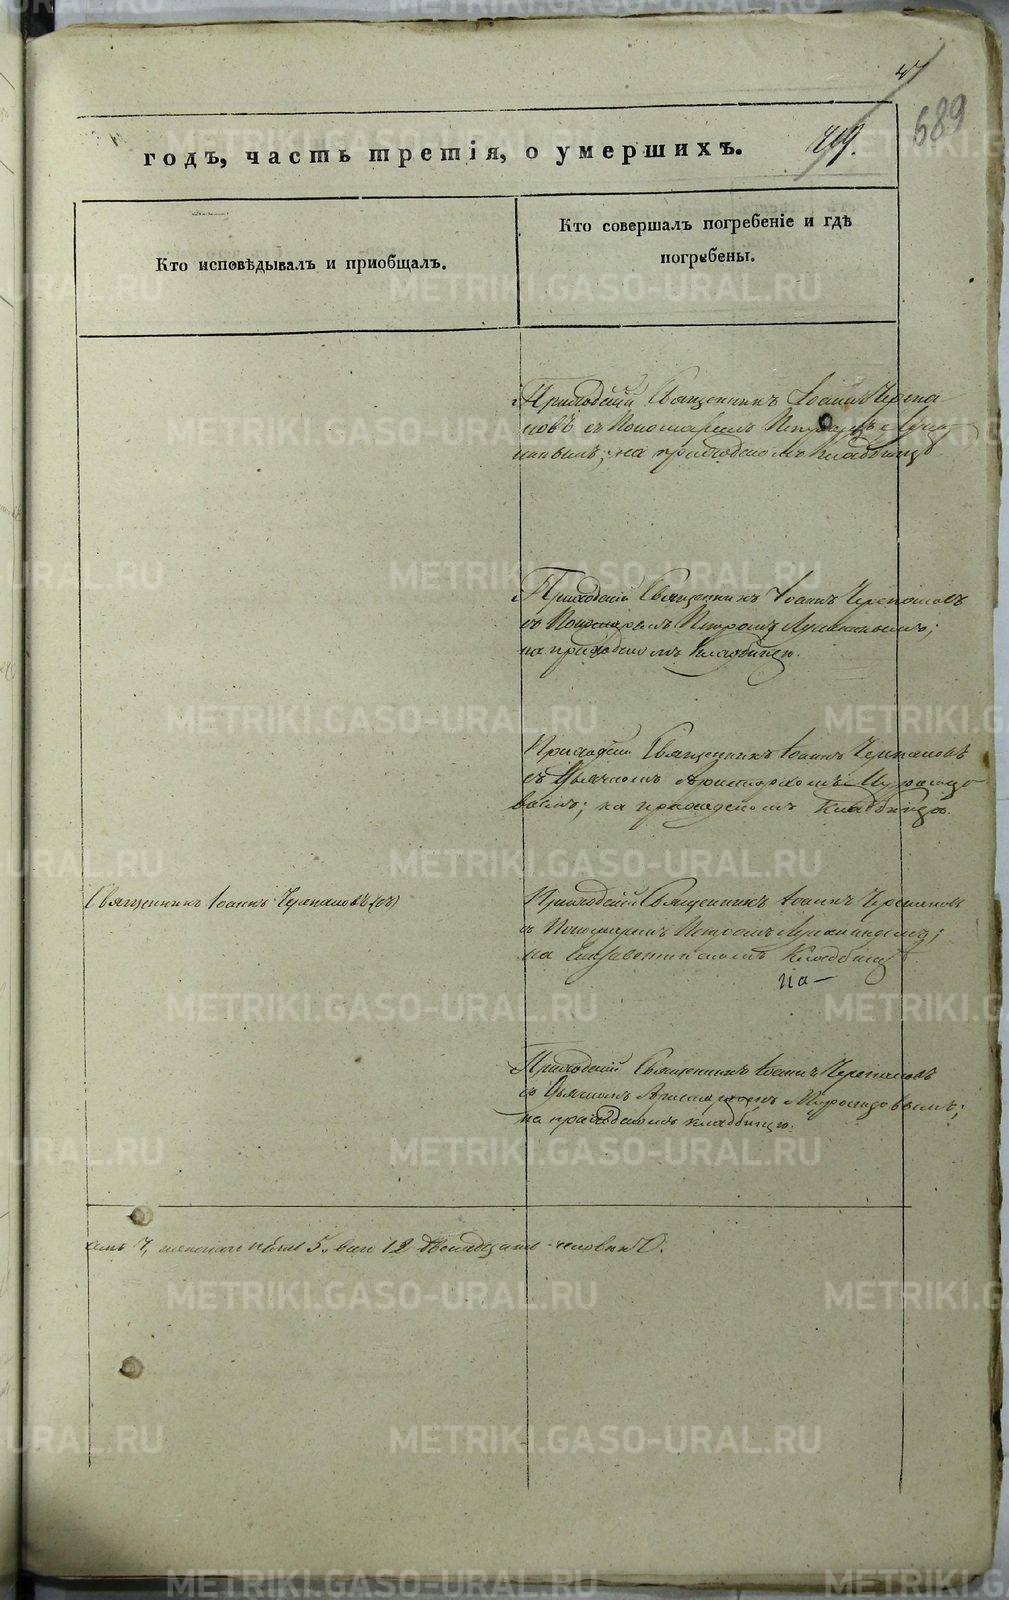 47
689
годъ, часть третія, о умершихъ.
Кто исповѣдывалъ и приобщалъ.
Кто совершалъ погребеніе и гдѣ
погребены.
Приходскій Священникъ Іоаннъ Черепа
новъ съ Пономаремъ Петромъ
на приходскомъ кладбищѣ
Приходскій Священникъ Іоаннъ Черепановъ
съ Пономаремъ Петромъ
на приходскомъ кладбищѣ.
Приходскій Священникъ Іоаннъ Черепановъ
съ Дьячкомъ
на приходскомъ кладбищѣ.
Священникъ Іоаннъ Черепановъ
Приходскій Священникъ Іоаннъ Черепановъ
съ Пономаремъ Петромъ
на Елисаветинскомъ кладбищѣ
Приходскій Священникъ Іоаннъ Черепановъ
съ Дьячкомъ
на приходскомъ кладбищѣ.
7, женскаго пола 5, всего 12 двенадцать человекъ.
METRIKI.GASO-URAL.RU